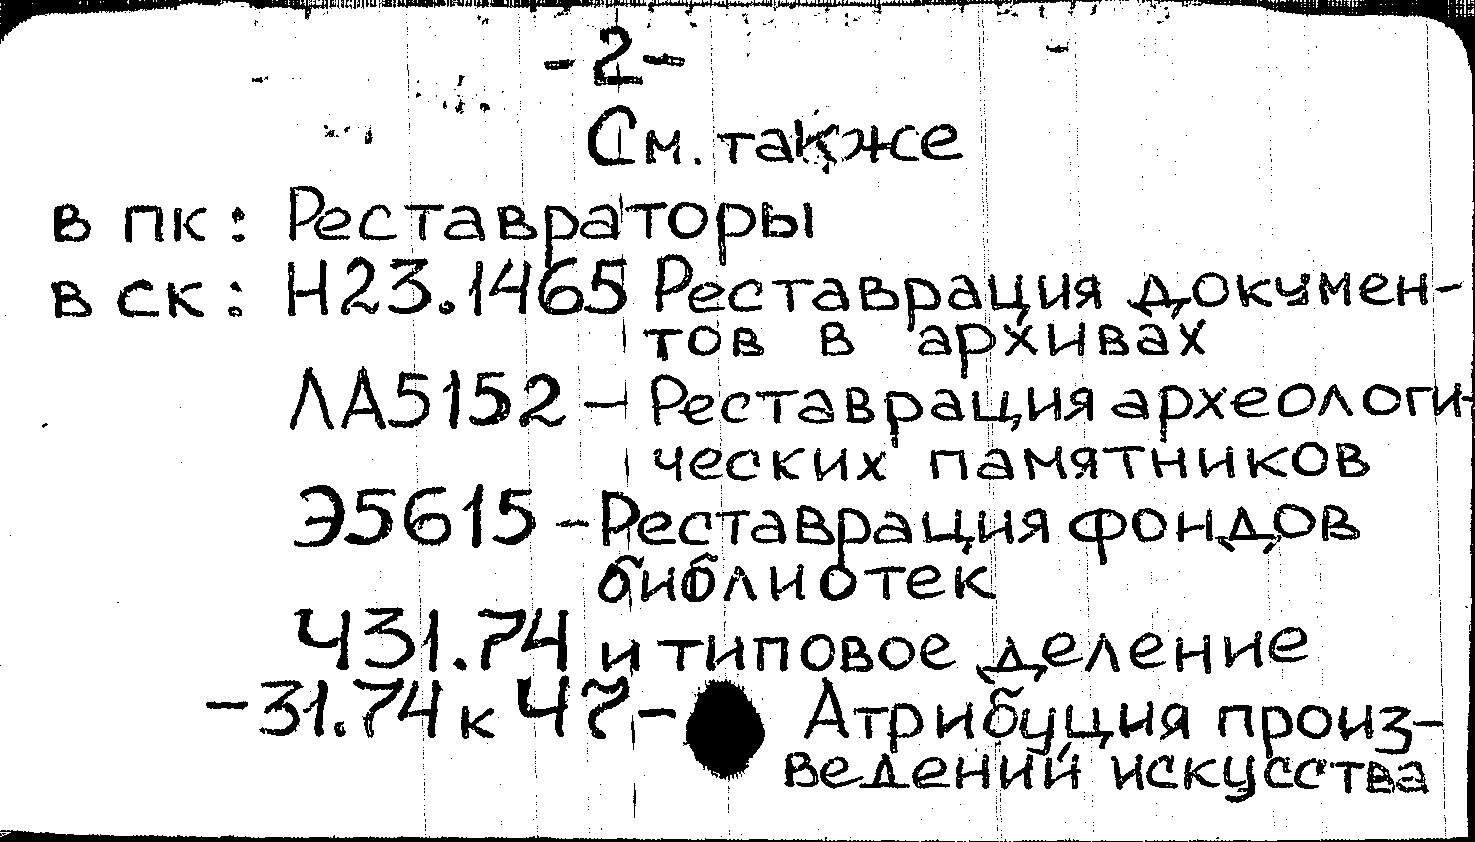 -2-
См. также
в пк: Реставраторы
в ск: Н23.1465 Реставрация докумен-
тов в архивах
ЛА5152 - Реставрация археологи-
ческих памятников
Э5615 - Реставрация фондов
библиотек
Ч31.74 и типовое деление
-31.74 к Ч7 - Атрибуция произ-
ведений искусства